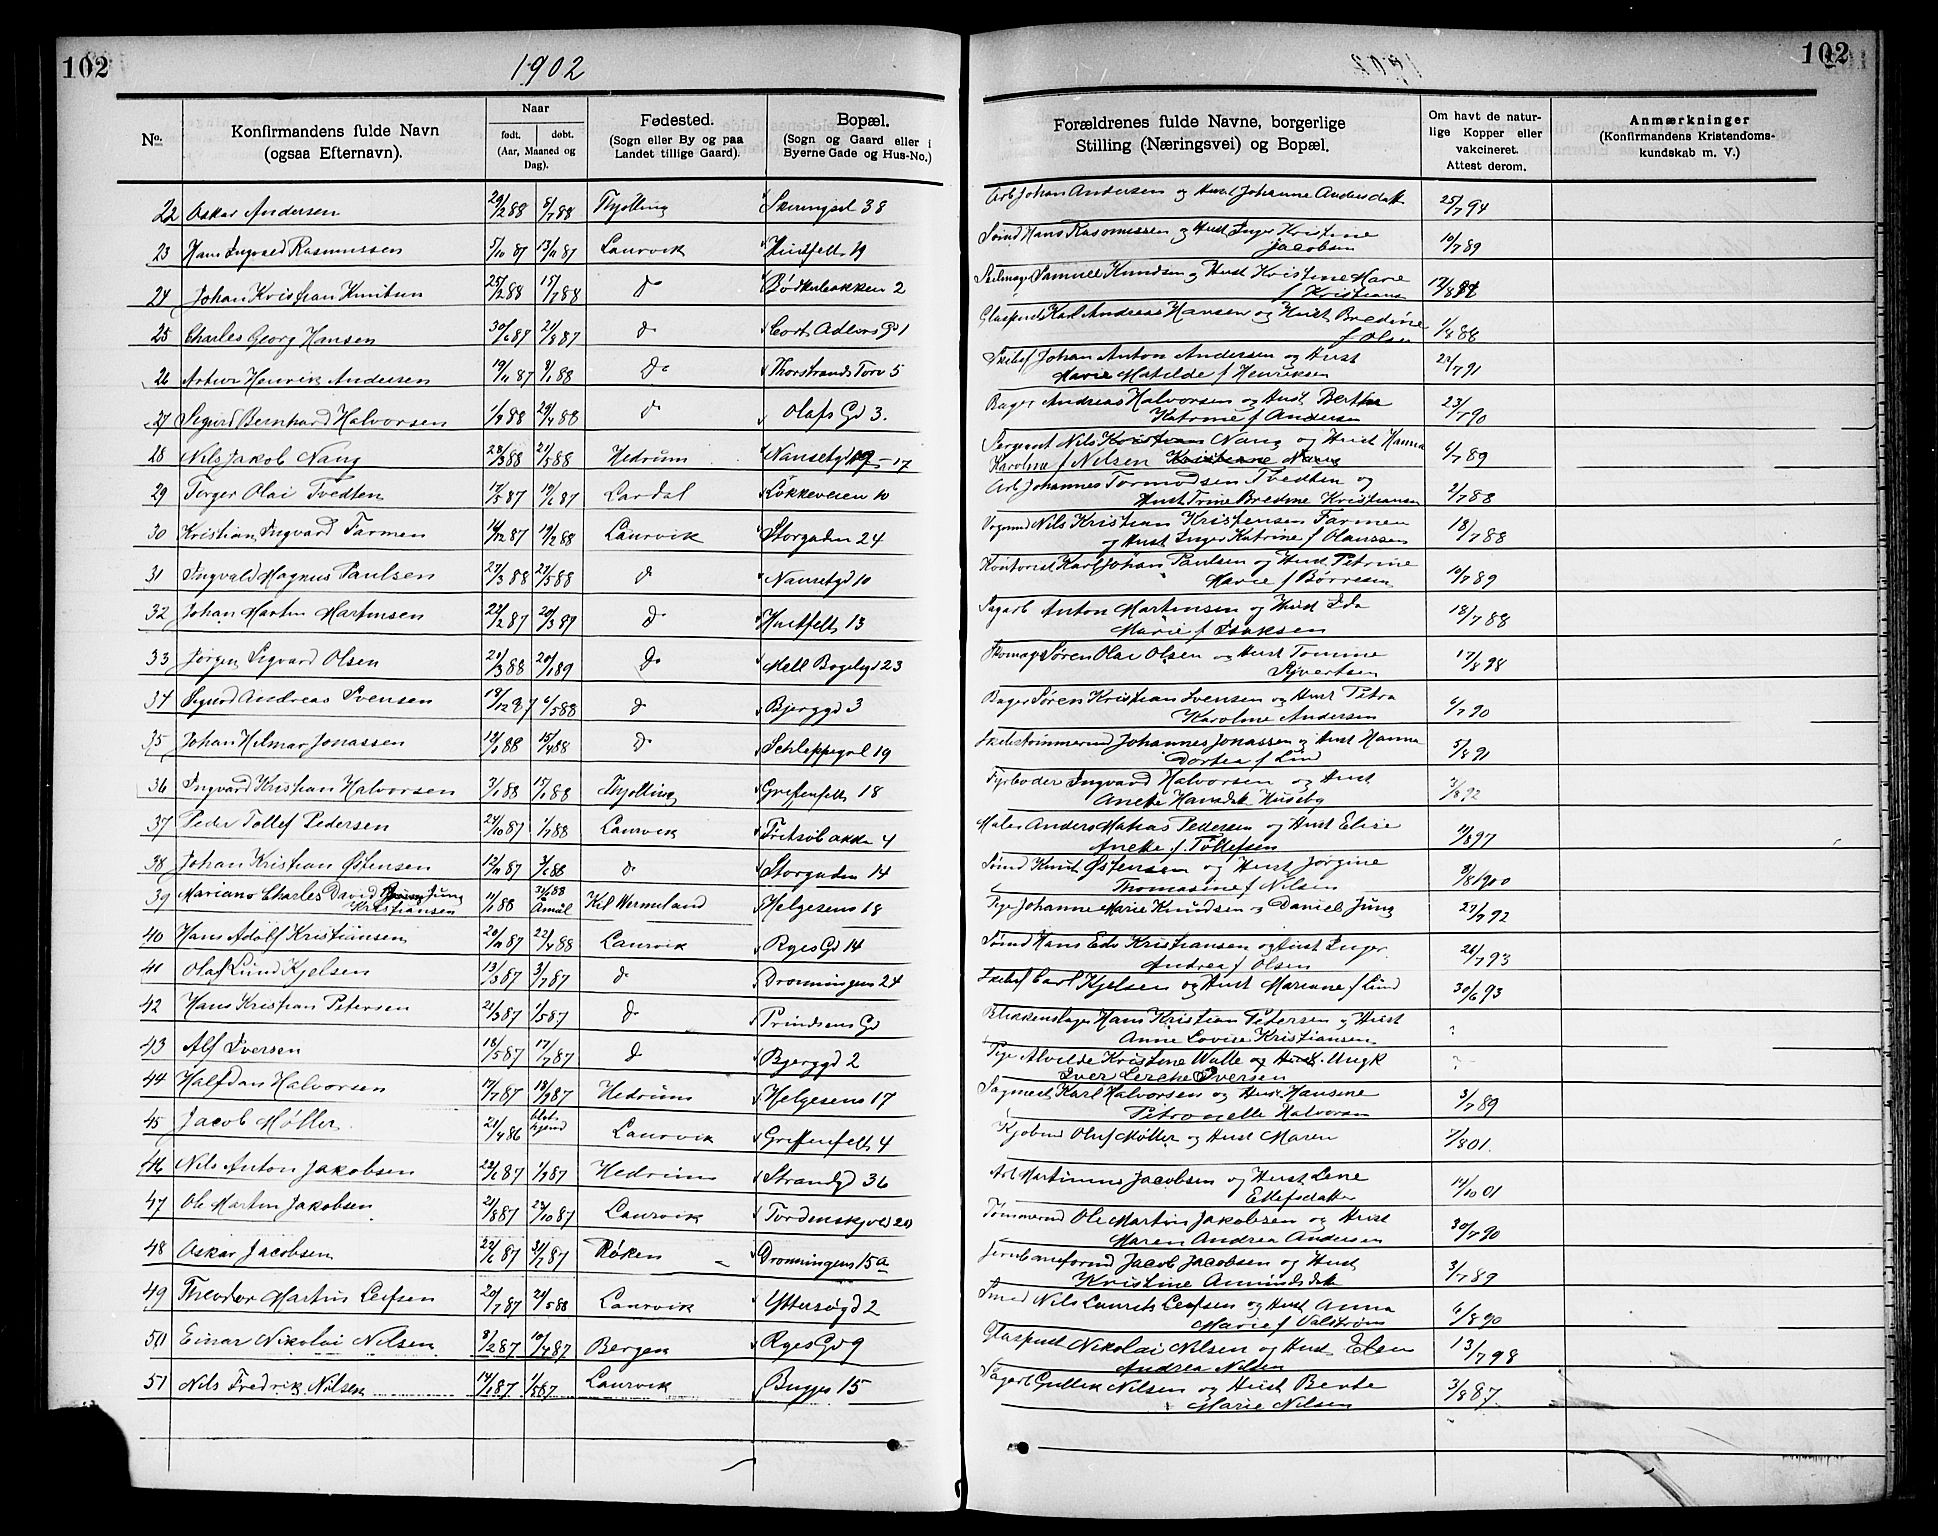 102
1902
No.
Konfirmandens fulde Navn
(ogsaa Efternavn).
Naar
født. døbt.
(Aar, Maaned og Dag).
Fødested.
(Sogn eller By og paa
Landet tillige Gaard).
Bopæl.
(Sogn og Gaard eller i
Byerne Gade og Hus-No.)
22 Oskar Andersen 29/2 88 8/7 88 Thjølling Skiringsal 38
23 Hans Ingvald Rasmussen 5/10 87 13/11 87 Laurvik Huitfelts 19
24 Johan Kristian Knutsen 25/2 88 15/7 88 do Bødkerbakken 2
25 Charles Georg Hansen 30/6 87 21/8 87 do Cort Adlers Gd 1
26 Artur Henrik Andersen 19/11 87 9/1 88 do Thorstrands Torv 5
27 Sigurd Bernhard Halvorsen 29/4 88 do Olafs Gd 3.
28 Nils Jakob Nang 28/3 88 21/5 88 Hedrum Nansetgd 17
29 Torger Olai Tvedten 17/5 87 19/6 87 Lardal Løkkeveien 10
30 Kristian Ingvard Farmen 14/12 87 19/2 88 Laurvik Storgaden 24
31 Ingvald Magnus Paulsen 27/3 88 27/5 88 do Nansetgd 10
32 Johan Martin Martinsen 22/2 87 20/3 89 do Huitfelts 13
33 Jørgen Sigvard Olsen 21/3 88 20/1 89 do Mell Bøgelygd 23
34 Sigurd Andreas Svensen 19/12 87 6/5 88 do Bjerggd 3
35 Johan Hilmar Jonassen 12/1 88 15/4 88 do Schleppegrel 19
36 Ingvard Kristian Halvorsen 3/1 88 15/1 88 Thjølling Griffenfelts 18
37 Peder Tollef Pedersen 24/10 87 1/7 88 Laurvik Fritsøbakke 4
38 Johan Kristian Østensen 12/11 87 3/6 88 do Storgaden 14
39 Mariano Charles David Jung
Kristiansen 11/1 88 Åmål Kil Wermeland Helgesens 18
40 Hans Adolf Kristiansen 20/11 87 22/4 88 Laurvik Ryes Gd 14
41 Olaf Lund Kjelsen 13/3 87 3/7 87 do Dronningens 24
42 Hans Kristian Petersen 21/3 87 1/5 87 do Prindsens Gd
43 Alf Iversen 18/5 87 17/7 87 do Bjerggd 2
44 Halfdan Halvorsen 17/7 87 18/9 87 Hedrum Helgesens 17
45 Jacob Møller 21/4 86 Laurvik Griffenfelts 4
46 Nils Anton Jakobsen 22/6 87 1/9 87 Hedrum Strandgd 36
47 Ole Martin Jakobsen 21/8 87 23/10 87 Laurvik Tordenskjolds 20
48 Oskar Jacobsen 22/6 87 31/7 87 Røken Dronningens 15a
49 Theodor Martin Leifsen 20/7 87 21/5 88 Laurvik Yttersøgd 2
50 Einar Nikolai Nilsen 8/2 87 10/4 87 Bergen Ryes Gd 9
51 Nils Fredrik Nilsen 14/1 87 1/5 87 Laurvik Bugges 15
102
Forældrenes fulde Navne, borgerlige
Stilling (Næringsvei) og Bopæl.
Om havt de natur-
lige Kopper eller
vakcineret.
Attest derom.
Anmærkninger
(Konfirmandens Kristendoms-
kundskab m. V.)
Arb Johan Andersen og Hust Johanne Andersdatt 25/7 94
Sømd Hans Rasmussen og Hust Inger Kristine
Jacobsen 10/7 89
Seilmag Samuel Knudsen og Hust Kristine Marie
f Kristians
Glaspust Karl Andreas Hansen og Hust Bredine
f Olsen 1/8 88
Skibsf Johan Anton Andersen og Hust
Marie Matilde f Henriksen 22/7 91
Bager Andreas Halvorsen og Hust Berthe
Katrine f Andersen 23/7 90
Sergeant Nils Kristian Nang og Hust Hanna
Karoline f Nielsen 6/7 89
Arb Johannes Tormodsen Tvedten og
Hust Trine Bredine Kristiansen 2/7 88
Vognmd Nils Kristian Kristensen Farmen
og Hust Inger Katrine f Olaussen 18/7 88
Kontorist Karl Johan Paulsen og Hust Petrine
Marie f Børresen 10/7 89
Sagarb Anton Martinsen og Hust Ida
Marie f Isaksen 18/7 88
Skomag Søren Olai Olsen og Hust Tomine
Sivertsen 17/8 98
Bager Søren Kristian Svensen og Hust Petra
Karoline Andersen 6/7 90
Skibstømmermd Johannes Jonassen og Hust Hanna
Dortea f Lind 5/8 91
Fyrbøder Ingvard Halvorsen og Hust
Aneke Hansdtr Huseby 3/8 92
Maler Anders Matias Pedersen og Hust Elise
Aneke f Tollefsen 11/8 97
Sømd Knut Østensen og Hust Jørgine
Thomasine f Nilsen 8/8 1900
Pige Johanne Marie Knudsen og Daniel Jung 27/7 92
Sømd Hans Edv Kristiansen og Hust Inger
Andrea f Olsen 26/7 93
Skibsf Carl Kjelsen og Hust Mariane f Lund 30/6 93
Blikkenslager Hans Kristian Petersen og Hust
Anne Lovise Kristiansen ?
Pige Alvilde Kristine Walle og Ungk
Iver Lerche Iversen ?
Sagmest Karl Halvorsen og Hust Hansine
Petronelle Halvorsen 3/7 89
Kjøbmd Oluf Møller og Hust Maren 7/8 01.
Arb Martinius Jacobsen og Hust Lene
Ellefsdatter 14/10 01
Tømmermd Ole Martin Jakobsen og Hust
Maren Andrea Andersen 30/7 90
Jernbaneformd Jacob Jacobsen og Hust
Kristine Amundsdtr 3/7 89
Smed Nils Laurits Leifsen og Hust Anna
Marie f Valstrøm 6/8 90
Glaspust Nikolai Nilsen og Hust Elen
Andrea Nilsen 13/7 98
Sagarb Gullik Nilsen og Hust Berte
Marie Nilsen 3/8 87